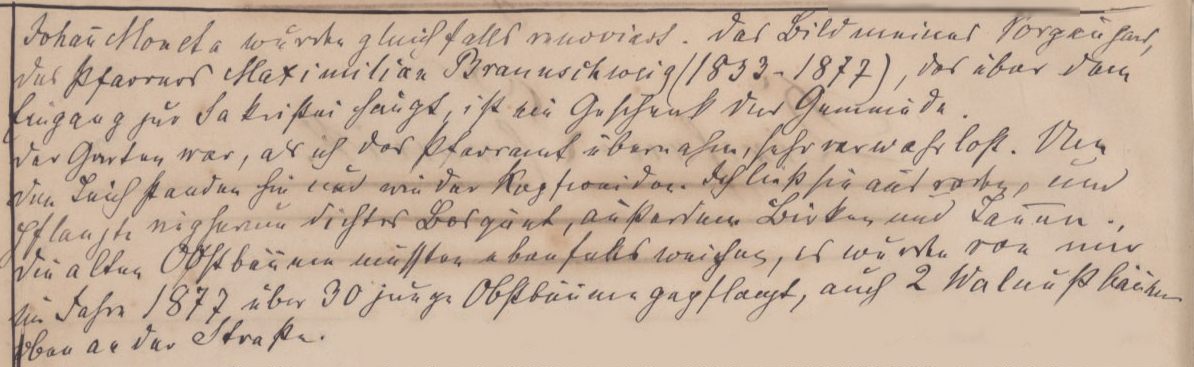 Johañ Moneta wurden gleichfalls renoviert. Das Bild meines Vorgängers,
des Pfarrers Maximilian Braunschweig (1833-1877), das über dem
Eingang zur Sakristei hängt, ist ein Geschenk der Gemeinde.
Der Garten war, als ich das Pfarramt übernahm, sehr verwahrlost. Um
den Teich standen hin und wieder Kopfweiden. Ich ließ sie ausroden, und
pflanzte ringherum dichtes Bosquet, außerdem Birken und Tannen.
Die alten Obstbäume mussten ebenfalls weichen, es wurden von mir
im Jahre 1877 über 30 junge Obstbäume gepflanzt, auch 2 Walnußbäume
oben an der Straße.